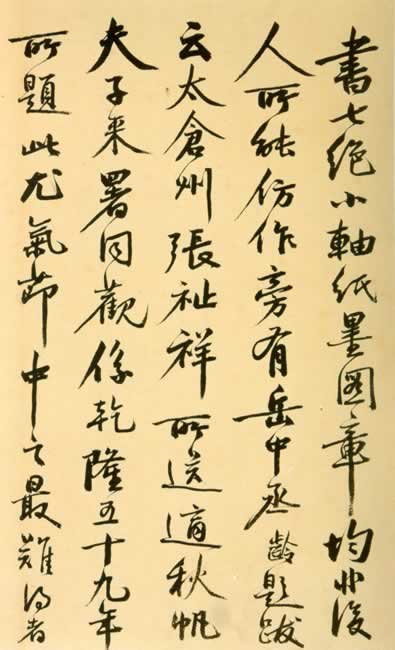 書七絕小軸紙墨圖章均非後
人所能仿作旁有岳中丞齡題跋
云太倉州張祉祥所送適秋帆
夫子来署同觀係乾隆五十九年
所題此尤氣節中之最難得者